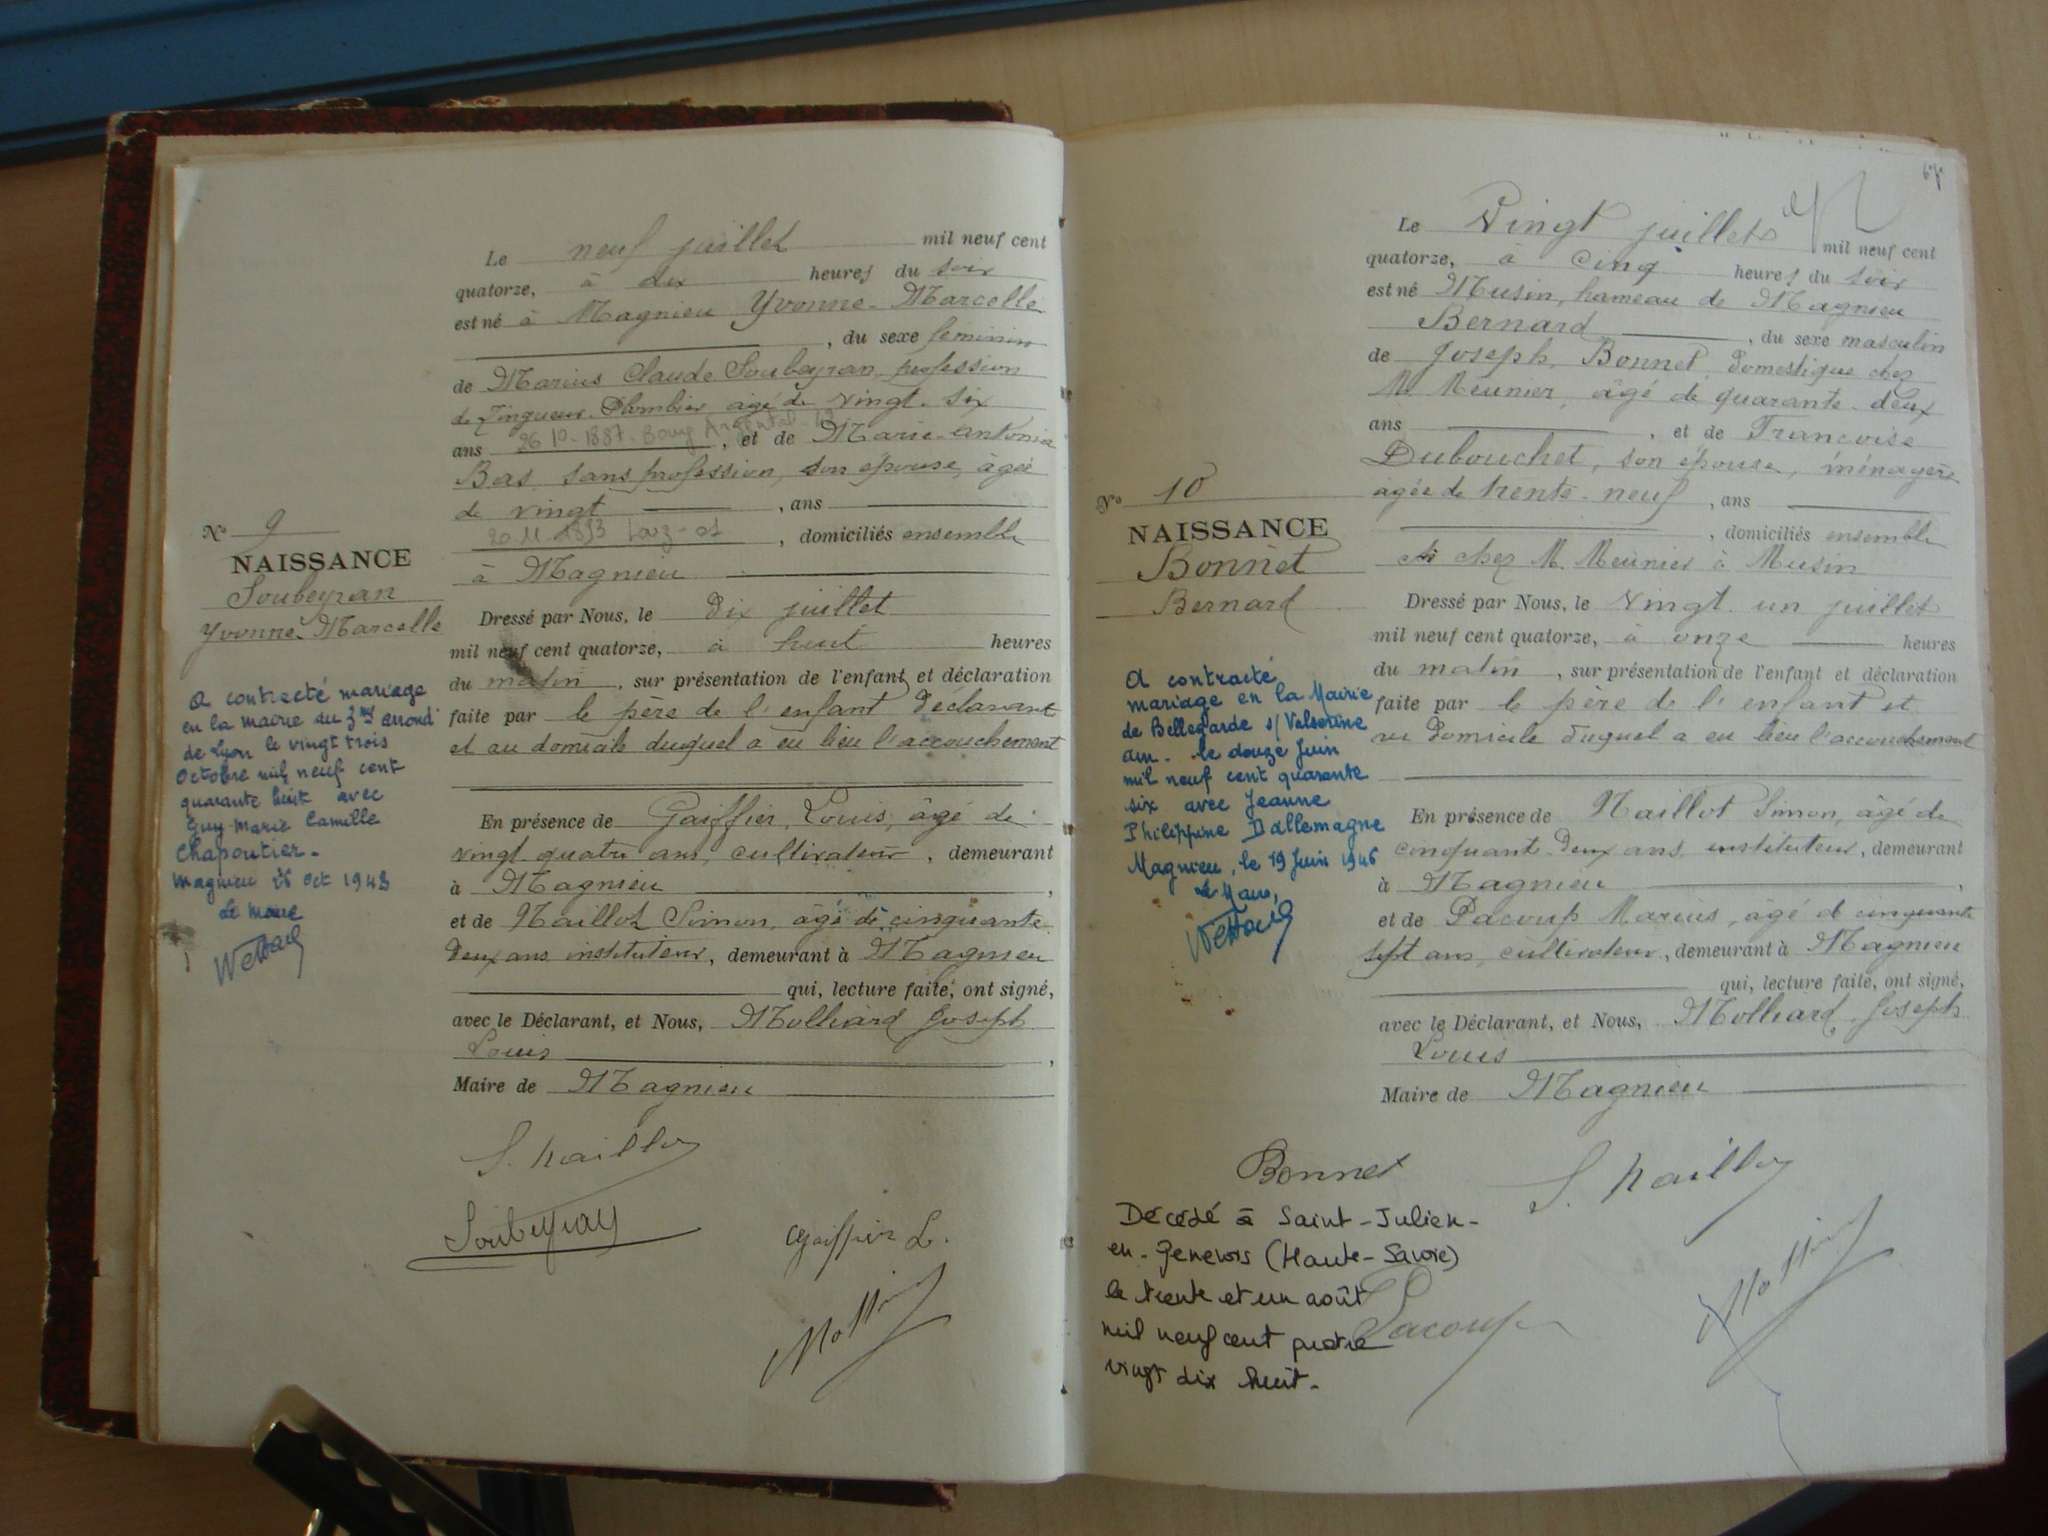 Le neuf juillet mil neuf cent
quatorze, à dix heures du soir
est né à Magnieu Yvonne-Marcelle
, du sexe feminin
de Marius Claude Soubeyran, profession
de Zingueur-Plombier, âgé de vingt-six
ans 26 10-1887- Bourg Argental , et de Marie-Antonia
Bas sans profession, son épouse, âgée
de vingt , ans
20.11.1893 , domiciliés ensemble
à Magnieu
N° 9
NAISSANCE
Soubeyran
Yvonne-Marcelle
Dressé par Nous, le Dix juillet
mil neuf cent quatorze, à huit heures
du matin , sur présentation de l'enfant et déclaration
faite par le père de l'enfant Déclarant
et au domicile duquel a eu lieu l'accouchement
En présence de Gaiffier, Louis, âgé de
vingt-quatre ans, cultivateur , demeurant
à Magnieu ,
et de Naillot Simon, âgé de cinquante
Deux ans instituteur, demeurant à Magnieu
qui, lecture faite, ont signé,
avec le Déclarant, et Nous, Molliard Joseph
Louis ,
Maire de Magnieu
A contracté mariage
en la mairie du 3me arrondt
de Lyon le vingt trois
Octobre mil neuf cent
quarante huit avec
Guy-Marie Camille
Chapoutier-
Magnieu 26 Oct 1948
Le Maire
S. Naillot
Soubeyran
Gaiffier L.
67
Le Vingt juillet mil neuf cent
quatorze, à cinq heures du soir
est né Musin, hameau de Magnieu
Bernard , du sexe masculin
de Joseph, Bonnet, Domestique chez
M. Meunier, âgé de quarante-deux
ans , et de Francoise
Dubouchet, son épouse, ménagère
âgée de trente-neuf , ans
, domiciliés ensemble
chez M. Meunier à Musin
N° 10
NAISSANCE
Bonnet
Bernard
Dressé par Nous, le vingt-un juillet
mil neuf cent quatorze, à onze heures
du matin , sur présentation de l'enfant et déclaration
faite par le père de l'enfant et
au Domicile duquel a eu lieu l'accouchement
En présence de Naillot Simon, âgé de
cinquant-Deux ans instituteur, demeurant
à Magnieu ,
et de Pacoup Marius, âgé de cinquante
sept ans, cultivateur, demeurant à Magnieu
qui, lecture faite, ont signé,
avec le Déclarant, et Nous, Molliard, Joseph
Louis
Maire de Magnieu
A contracté
mariage en la Mairie
de Bellegarde s/ Valserine
Ain- le douze Juin
mil neuf cent quarante
six avec Jeanne
Philippine Dallemagne
Magnieu, le 19 Juin 1946
Le Maire,
Bonnet
S. Naillot
Pacoup
Décédé à Saint-Julien-
en-Genevois (Haute-Savoie)
le trente et un août
mil neuf cent quatre
vingt dix huit.